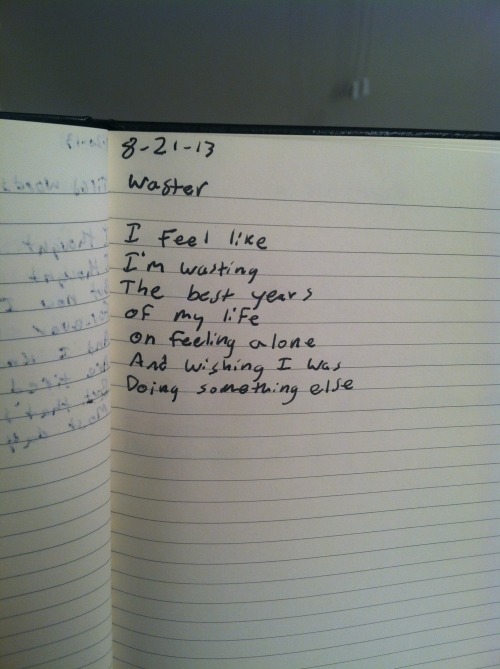 8-21-13
Waster
I Feel like
I'm wasting
The best years
of my life
on feeling alone
And wishing I was
Doing something else